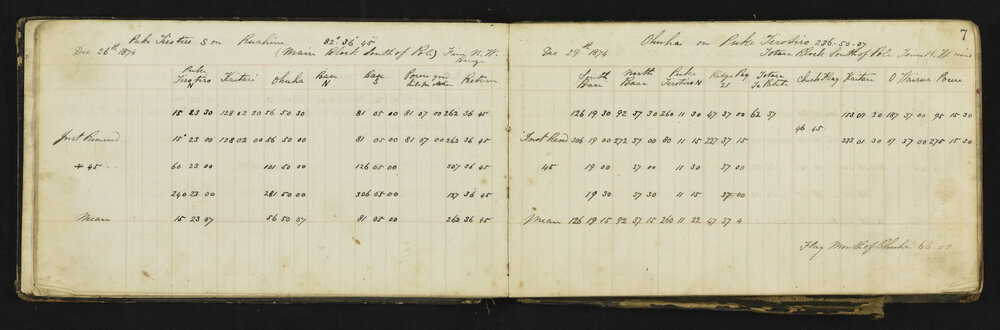 Puke Tirotiro S on Ruahine 82° 36' 45
Dec 26th 1874 (Main Block South of Pole) Fine N. W.
Puke Tirotiro N Kaitari Ohuha Base N Base S Return
15 23 30 128 02 30 56 50 30 81 05 00 81 07 00 262 36 45
Inst Revised 15° 23 00 128 02 00 56 50 00 81 05 00 81 07 00 262 36 45
+ 45 60 23 00 101 50 00 126 05 00 307 36 45
240 23 00 281 50 00 306 05 00 127 36 45
Mean 15 23 07 56 50 07 81 05 00 262 36 45
7
Ohuha on Puke Tirotiro 236. 50. 07
Dec 29th 1874 Totara Block South of Pole Fine N. W. wind
South Base North Base Puke Tirotiro N Ridge Peg 21 Totara Check Flag Kaitari O Wairua
126 19 30 92 37 30 260 11 30 47 37 00 62 37 153 03 30 187 37 00 95 15 30
96 45
Inst Revd 306 19 00 272 37 00 80 11 15 227 37 15 333 01 30 07 37 00 275 15 30
45 19 00 37 00 11 30 37 00
19 30 37 30 11 15 37 00
Mean 126 19 15 92 37 15 260 11 22 47 37 4
Flag of Ohuha 66. 02